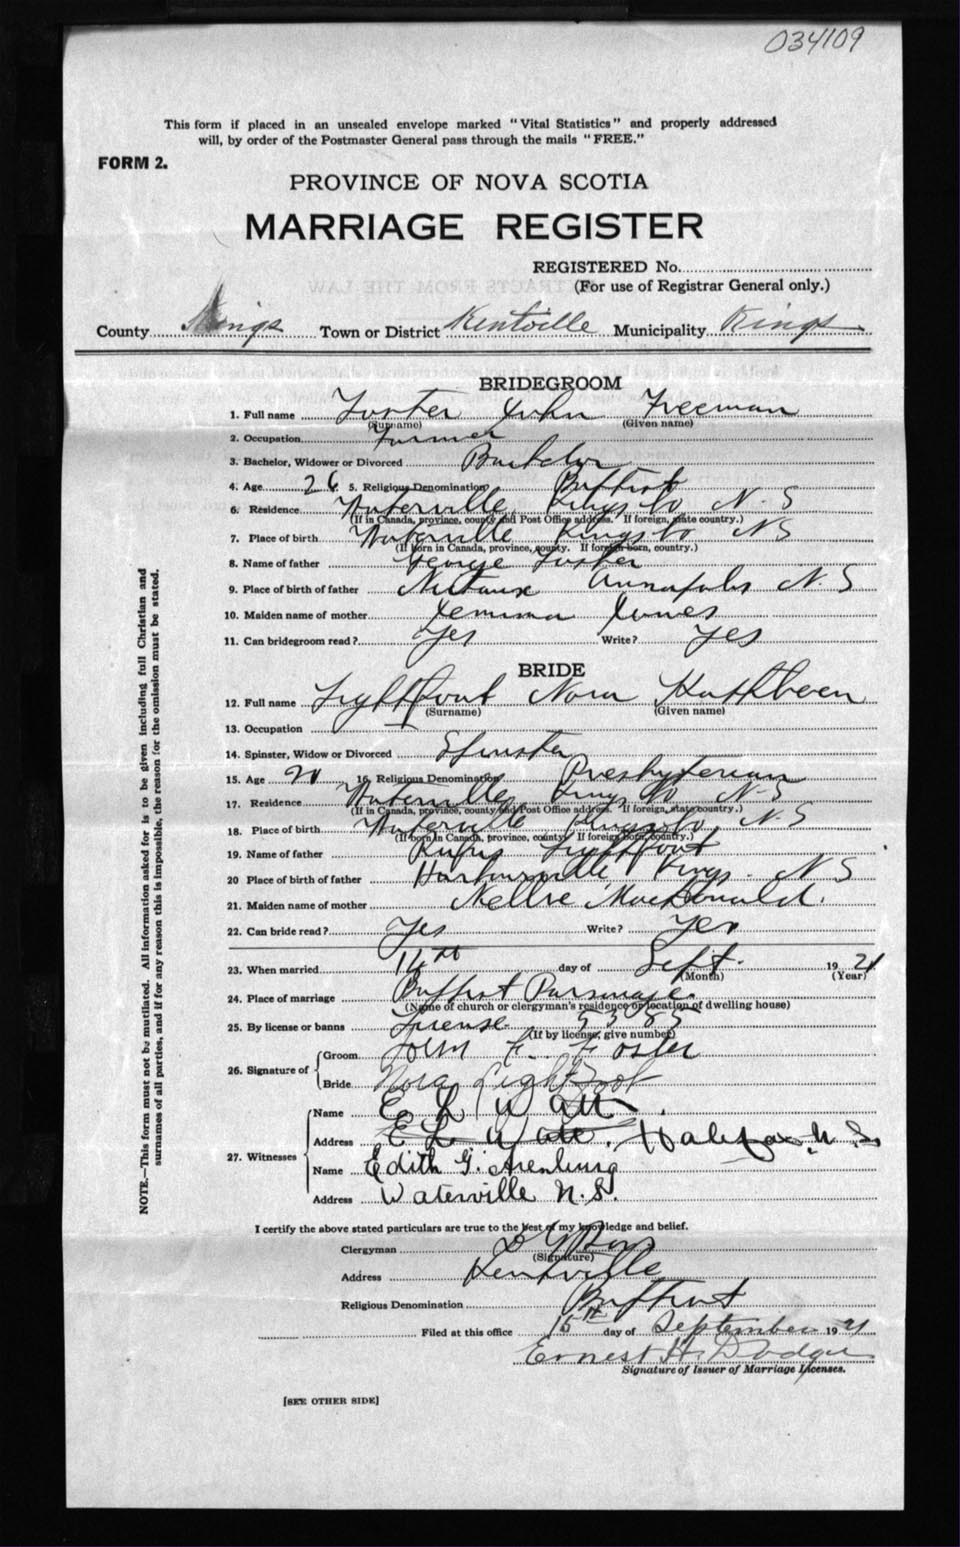 034109
This form if placed in an unsealed envelope marked "Vital Statistics" and properly addressed
will, by order of the Postmaster General pass through the mails "FREE."
FORM 2.
PROVINCE OF NOVA SCOTIA
MARRIAGE REGISTER
REGISTERED No.
(For use of Registrar General only.)
County Kings Town or District Kentville Municipality Kings
BRIDEGROOM
1. Full name Foster John Freeman
(Surname) (Given name)
2. Occupation Farmer
3. Bachelor, Widower or Divorced Bachelor
4. Age 26 5. Religious Denomination Baptist
6. Residence Waterville Kings Co N.S
(If in Canada, province, county and Post Office address. If foreign, state country.)
7. Place of birth Waterville Kings Co N S
(If born in Canada, province, county. If foreign born, country.)
8. Name of father George Foster
9. Place of birth of father Nictaux Annapolis N.S
10. Maiden name of mother Jemima Jones
11. Can bridegroom read? Yes Write? Yes
BRIDE
12. Full name Lightfoot Nora Kathleen
(Surname) (Given name)
13. Occupation
14. Spinster, Widow or Divorced Spinster
15. Age 16. Religious Denomination Presbyterian
17. Residence Waterville Kings Co N-S
(If in Canada, province, county and Post Office address. If foreign, state country.)
18. Place of birth Waterville Kings Co N.S
(If born in Canada, province, county. If foreign born, country.)
19. Name of father Rufus Lightfoot
20 Place of birth of father Harbourville Kings N S
21. Maiden name of mother Nellie MacDonald.
22. Can bride read? Yes Write? Yes
23. When married 14th day of Sept. 1921
(Month) (Year)
24. Place of marriage Baptist Parsonage.
(Name of church or clergyman's residence or location of dwelling house)
25. By license or banns License
(If by license, give number)
26. Signature of Groom John F. Foster
Bride Nora Lightfoot
27. Witnesses Name E L Watt.
Address E L Watt. Halifax N.S.
Name Edith G. Arenburg
Address Waterville N.S.
I certify the above stated particulars are true to the best of my knowledge and belief.
Clergyman
(Signature)
Address Kentville
Religious Denomination Baptist
Filed at this office 15th day of September 1921
Ernest H. Dodge
Signature of Issuer of Marriage Licenses.
[SEE OTHER SIDE]
NOTE.—This form must not be mutilated. All information asked for is to be given including full Christian and
surnames of all parties, and if for any reason this is impossible, the reason for the omission must be stated.